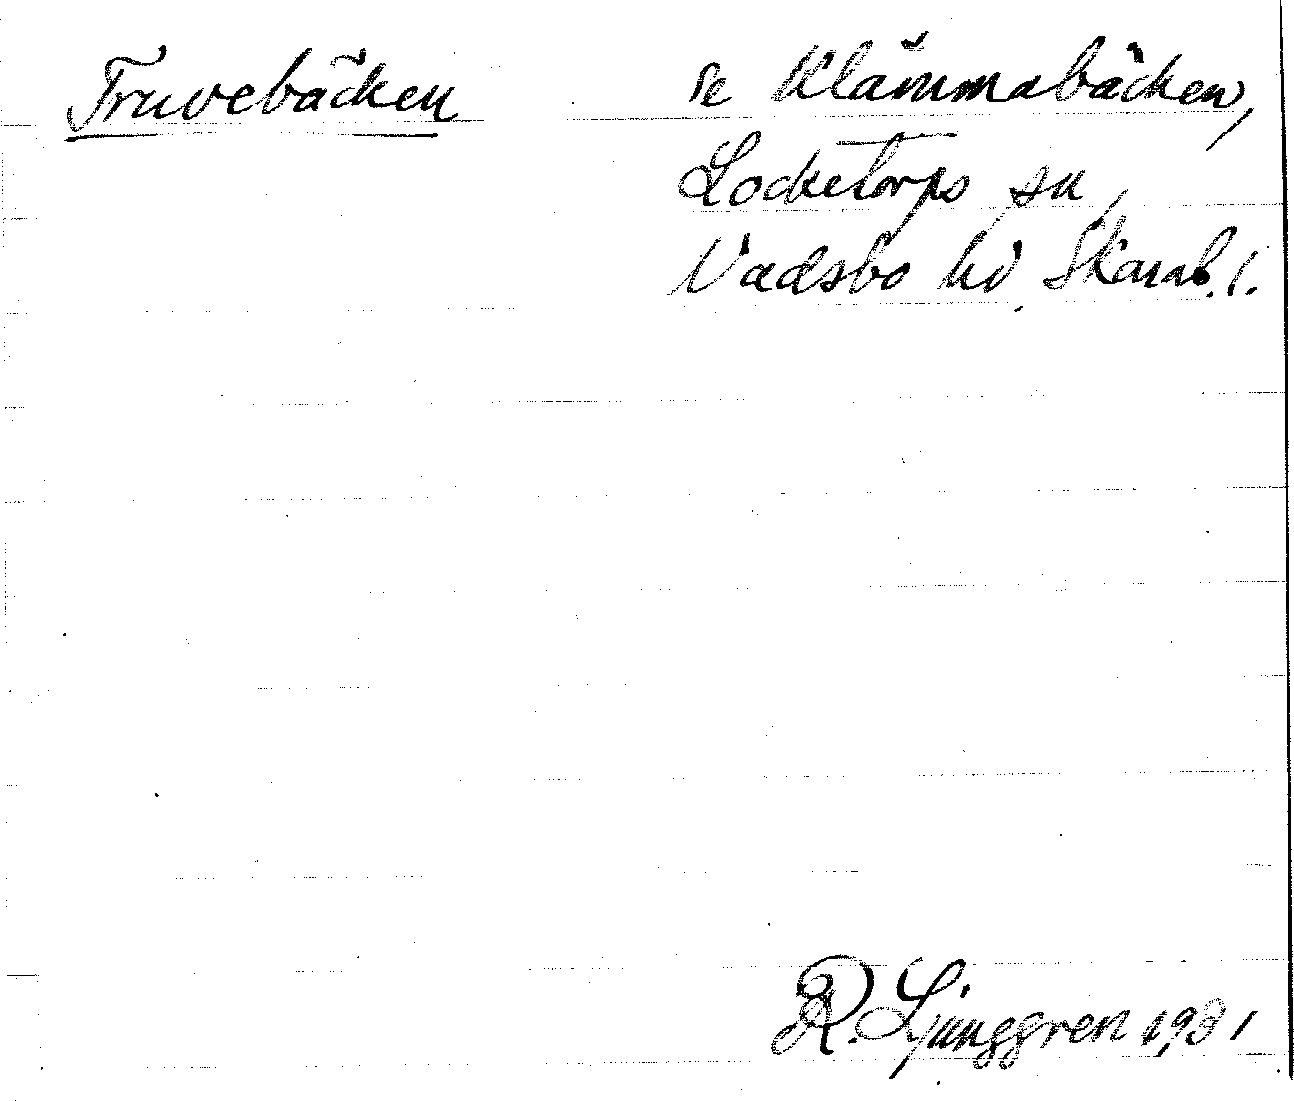 Truvebäcken
se Klämmabäcken,
Locketorps sn,
Vadsbo hd, Skarab. l.
R. Ljunggren 1931